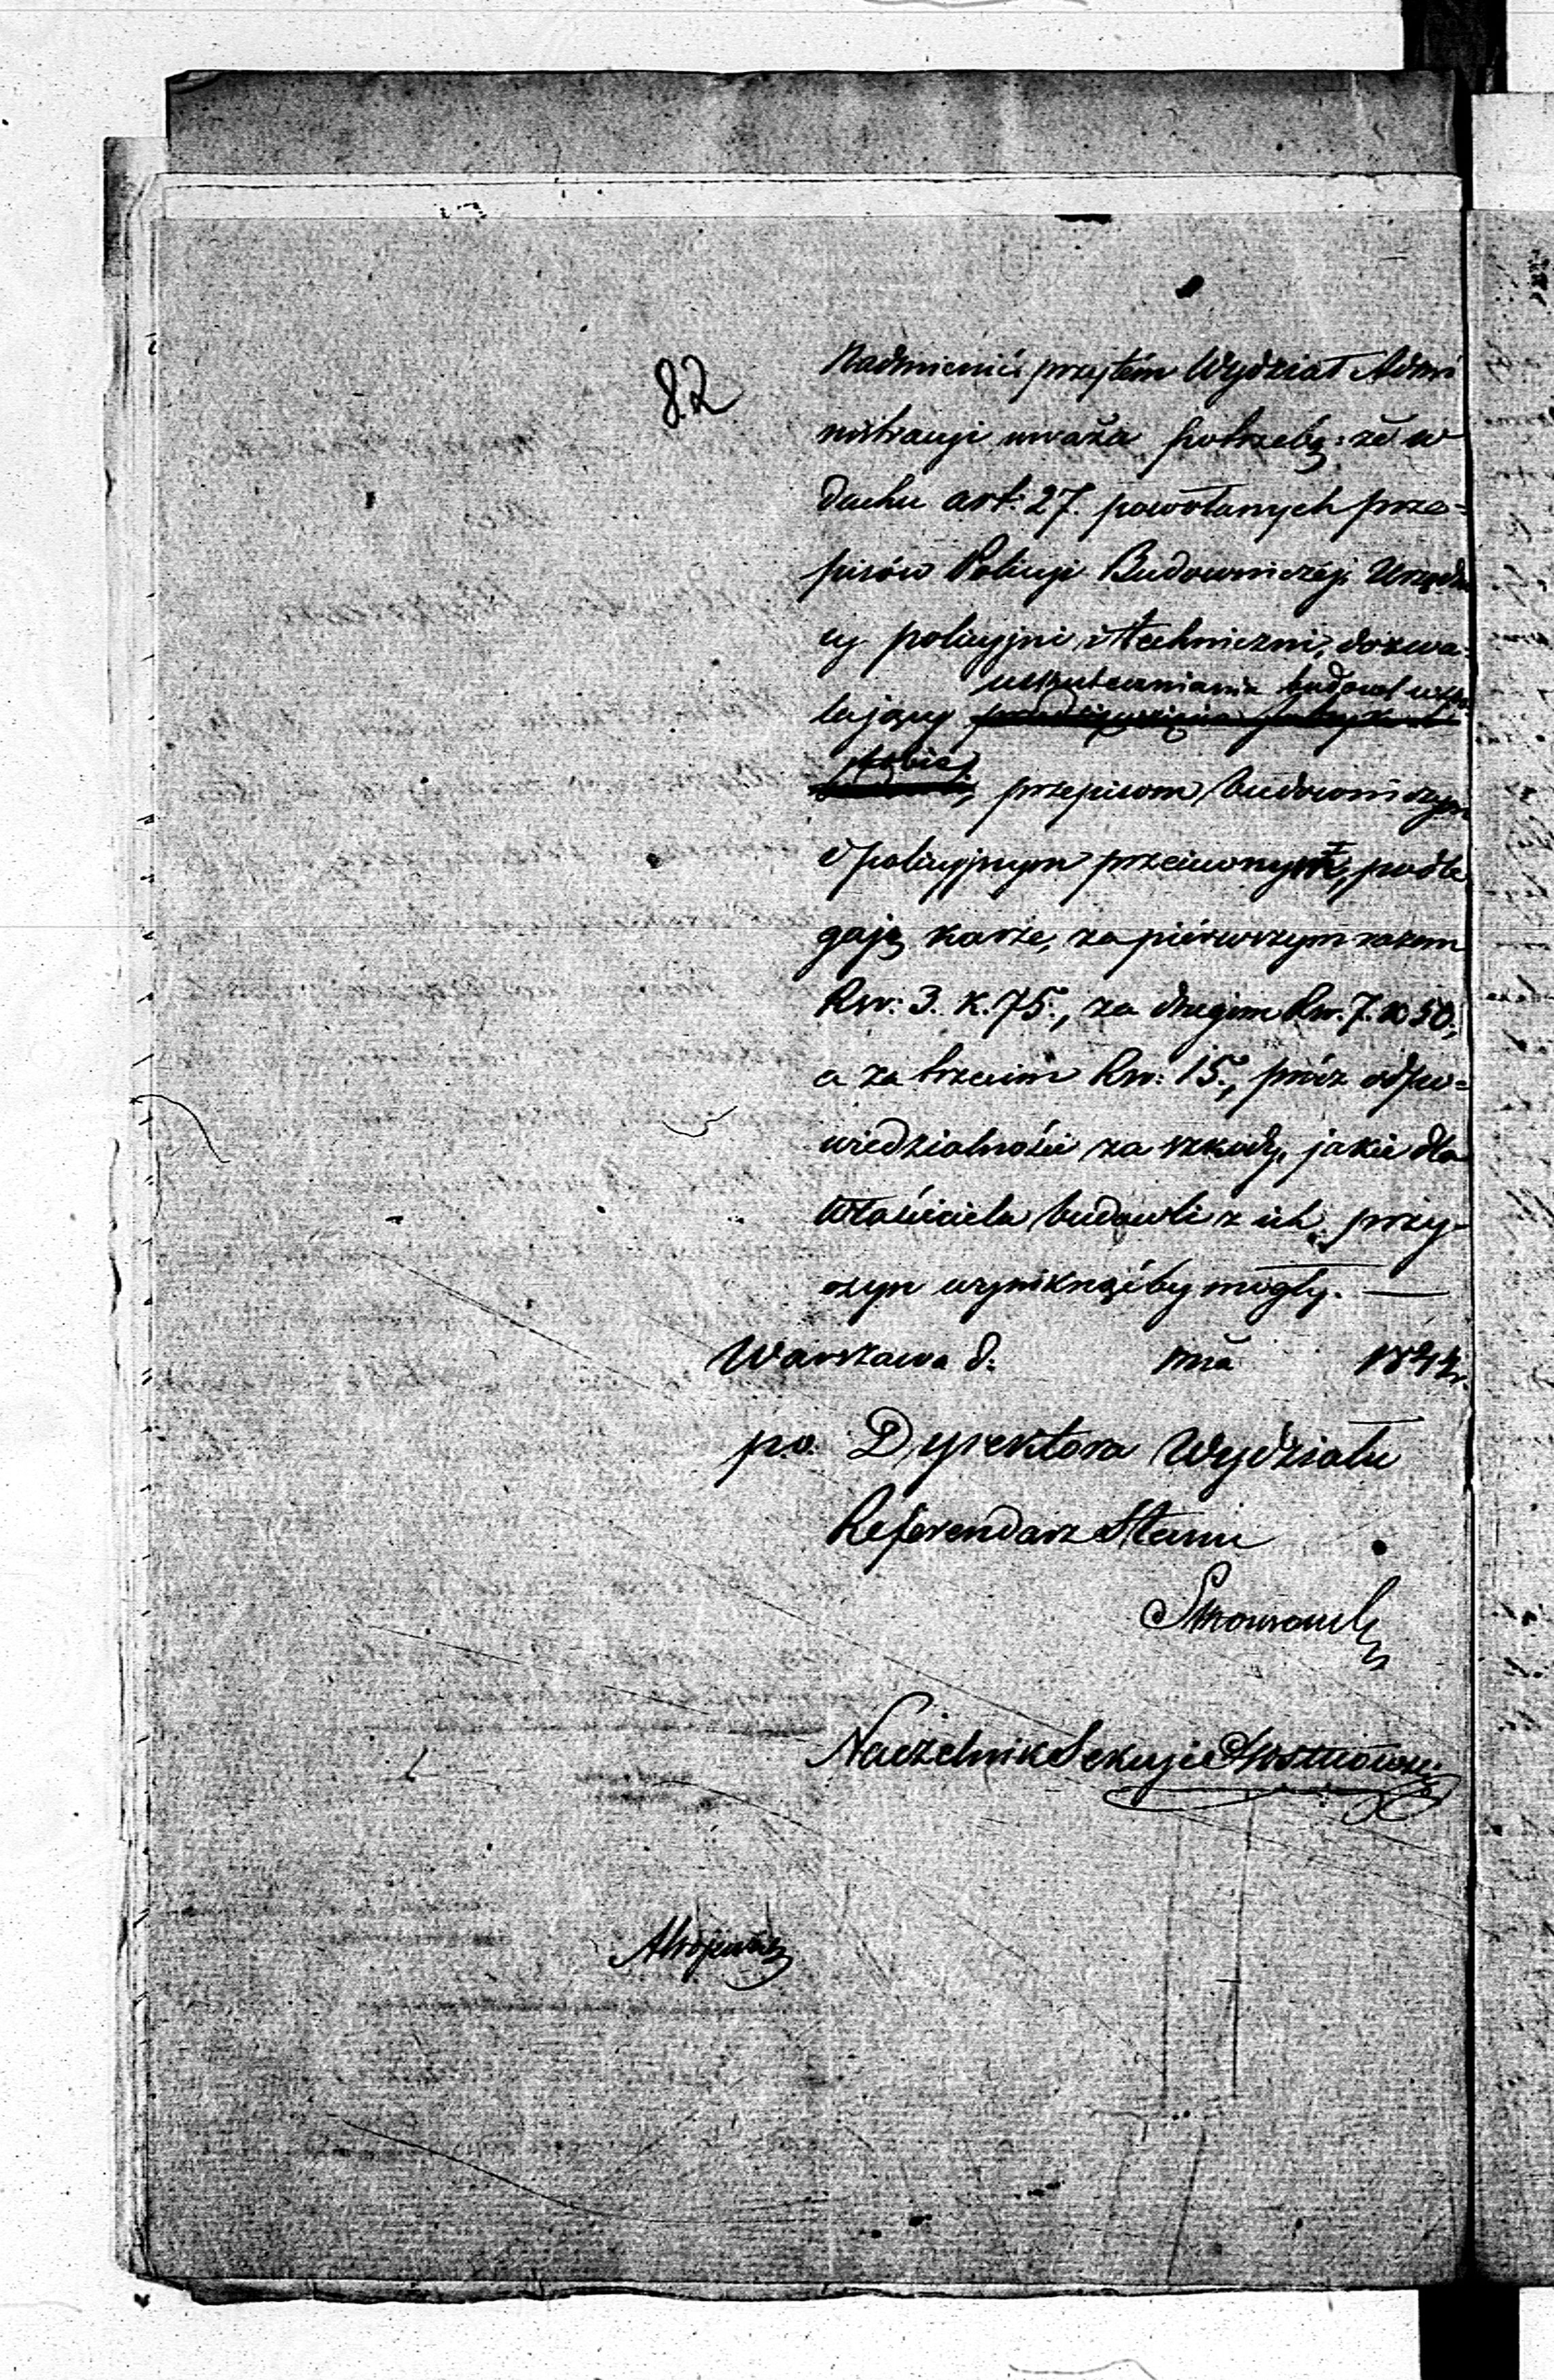 82
Nadmienić przytém Wydział Admi
nistracyi uważa potrzebę: że w
duchu art: 27. powołanych prze=
pisów Policyi Budowniczéj. Urzędni
cy policyjni i techniczni, dozwa=
uskuteczniania budowl w spo
lający
sobie,
przepisom budowniczym
i policyjnym przeciwnym, podle
gają karze, za pierwszym razem
Rsr: 3. k. 75., za drugim Rsr. 7. k 50.,
a za trzecim Rsr: 15., prócz odpo=
wiedzialności za szkody, jakie dla
Właściciela budowli z ich przy-
czyn wyniknąćby mogły. —
Warszawa d. mca 1844 r.
p.o. Dyrektora Wydziału
Referendarz Stanu
Naczelnik Sekcyi